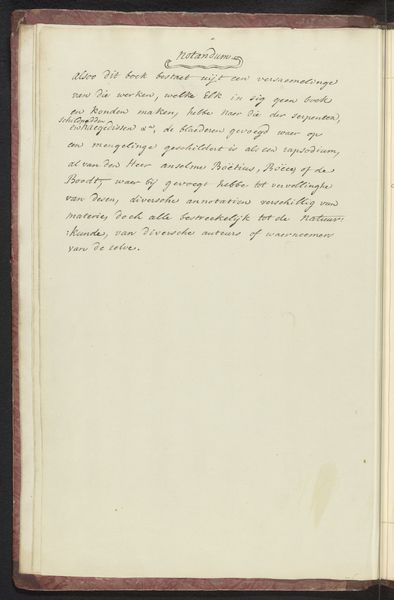 Notandum
alsoo dit boek bestaet uijt een versaemelinge
van die werken, welke Elk in sig geen boek
en konden maken, hebbe naer die der serpenten,
schilpadden
&c, de bladeren gevoegd waer op
een mengelinge geschildert is als een rapsodium,
al van den Heer anselme Boëtius, of de
Boodt, waer bij gevoegt hebbe tot vervollinghe
van desen, diversche annotatien verschillig van
materie, doch alle betreckelijk tot de natuur:
:kunde, van diversche auteurs of waerneemers
van de selve.